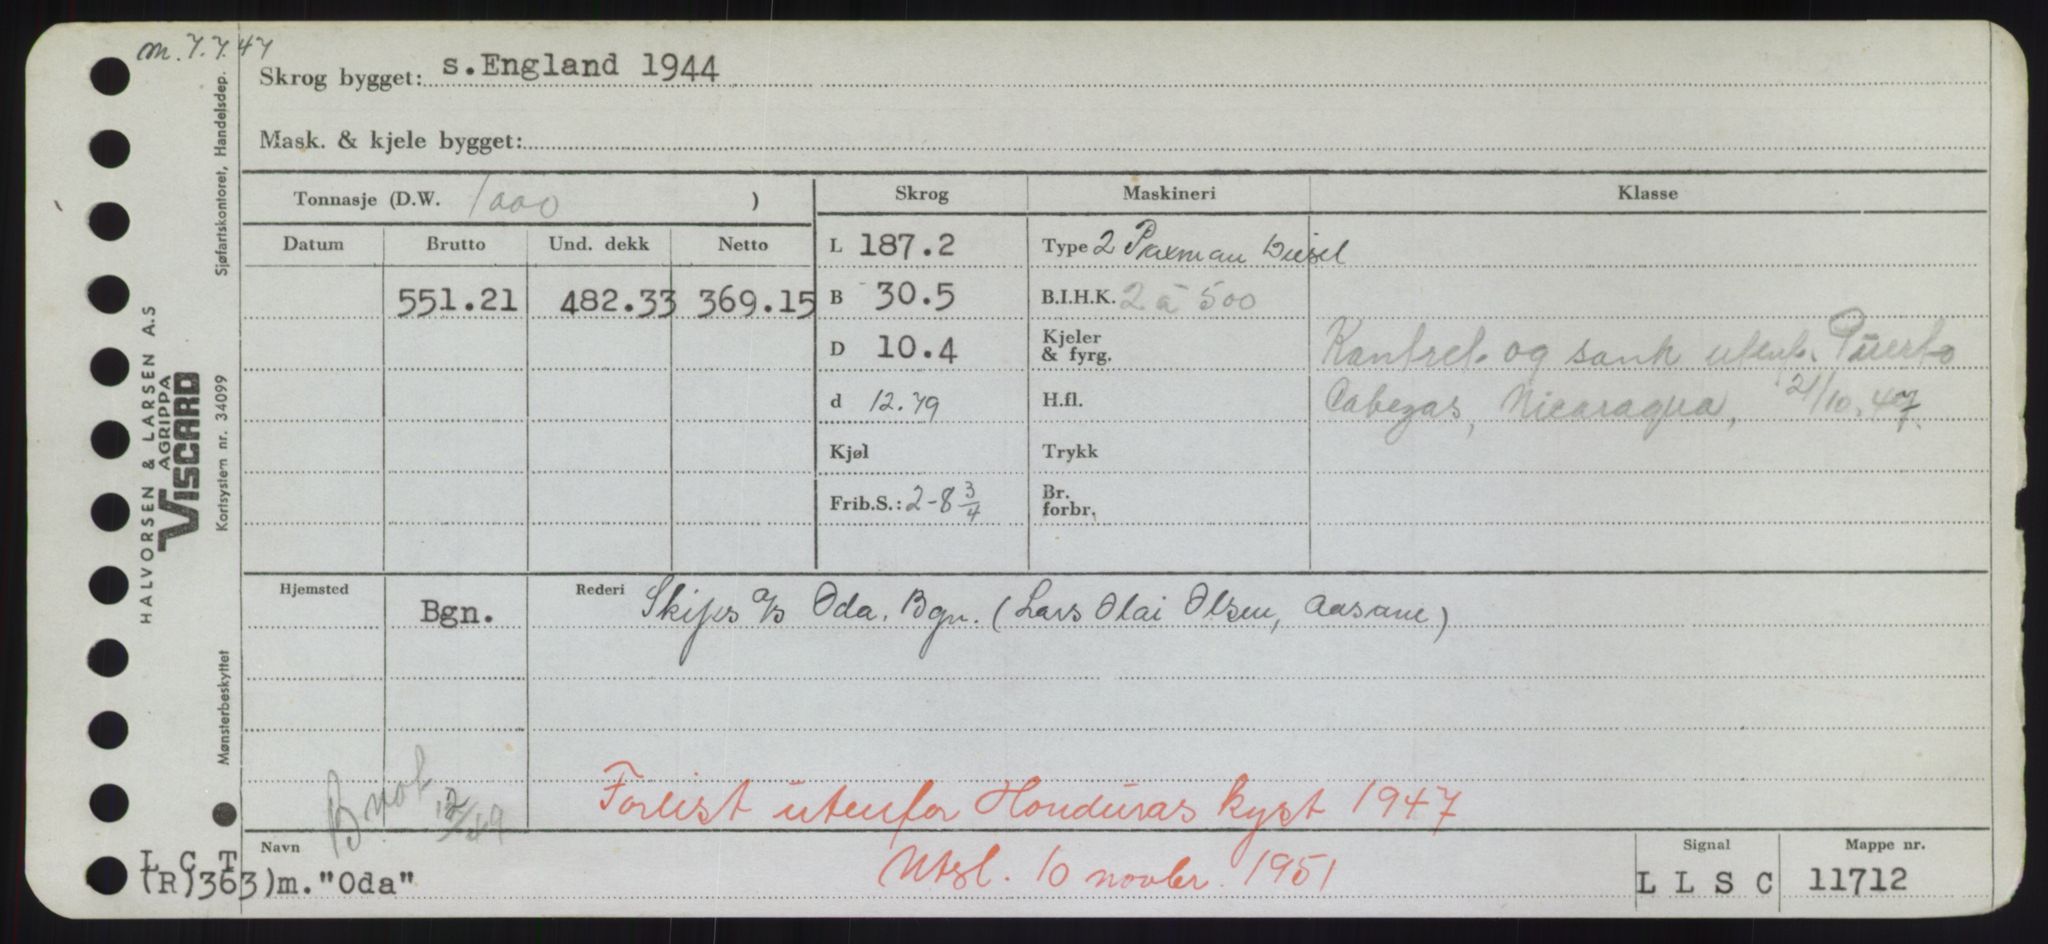 m. 7.7.47
Skrog bygget: s.England 1944
Mask. & kjele bygget:
Tonnasje (D.W. 1000 )
Skrog Maskineri Klasse
Datum Brutto Und. dekk Netto
L 187.2 Type 2 Paxman Diesel
551.21 482.33 369.15 B 30.5 B.I.H.K. 2 à 500
D 10.4 Kjeler & fyrg. Kantret og sank utenf. Puerto
d 12.79 H.fl. Cabezas, Nicaragua, 21/10.47.
Kjøl Trykk
Frib.S.: 2-8 3/4 Br. forbr.
Hjemsted Bgn. Rederi Skips a/s Oda. Bgn. (Lars Olai Olsen, Aasane)
12/49
Forlist utenfor Honduras kyst 1947
Utsl. 10 novbr. 1951
Navn
L C T
(R)363)m."Oda"
Signal
L L S C
Mappe nr.
11712
HALVORSEN & LARSEN A.S
AGRIPPA
VISCARD
Sjøfartskontoret, Handelsdep.
Kortsystem nr. 34099
Mønsterbeskyttet